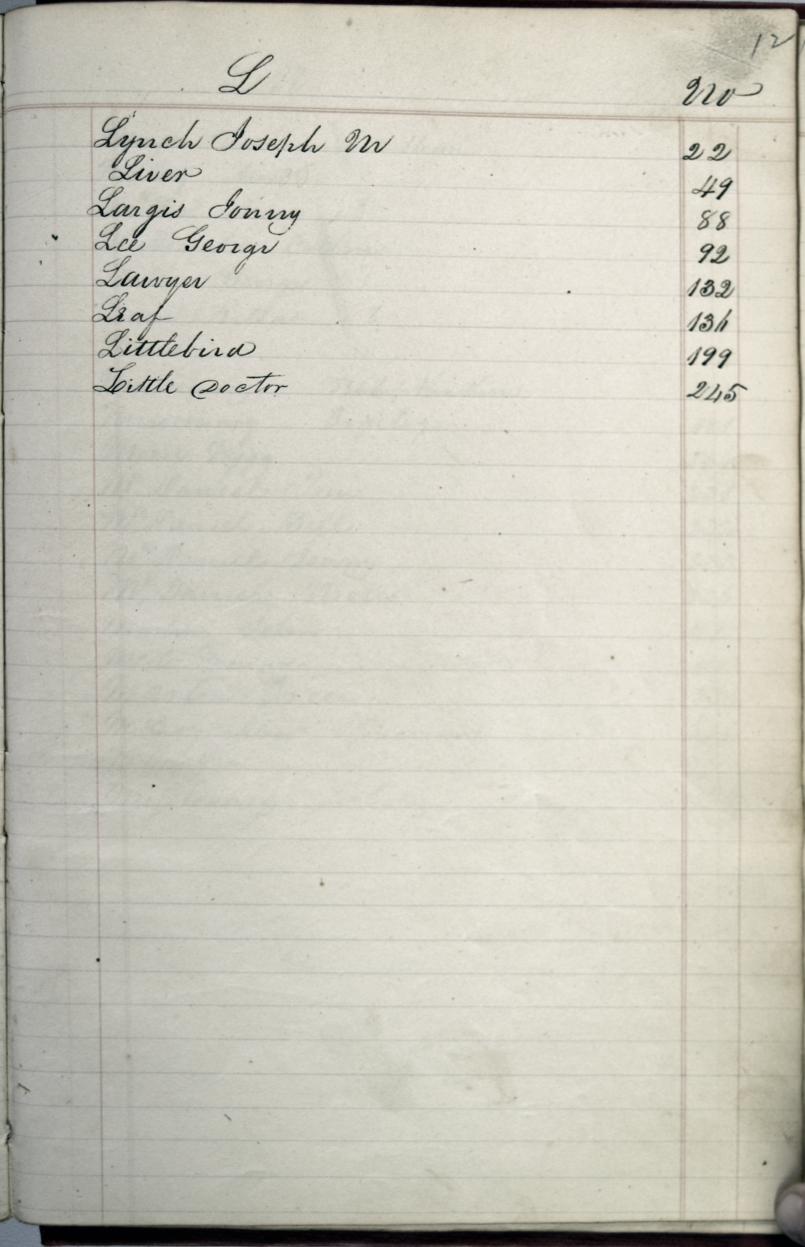 12
L No
Lynch Joseph M 22
Liver 49
Largis Jonny 88
Lee George 92
Lawyer 132
Leaf
Littlebird 199
Little Doctor 245